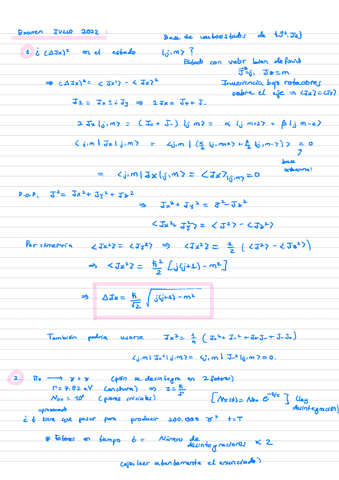 Examen JULIO 2022 :
Base de autoestados de {J², Jz}
1. ¿(ΔJx)² en el estado |j,m> ?
Estado con valor bien definido
J²=j, Jz=m
⇒ (ΔJx)² = <Jx²> - <Jx>²
Invariancia bajo rotaciones
sobre el eje z <Jx²>=<Jy²>
J± = Jx ± iJy ⇒ 2Jx = J+ + J-
2 Jx |j,m> = (J+ + J-) |j m> = α |j m+1> + β |j m-1>
<j,m| Jx |j,m> = <j,m| (α/2 |j,m+1> + β/2 |j,m-1>) = 0
base
ortonormal
= <j,m| Jx |j,m> = <Jx>|j,m> = 0
P.O.P. J² = Jx² + Jy² + Jz²
⇒ Jx² + Jy² = J² - Jz²
<Jx² + Jy²> = <J²> - <Jz²>
Por simetría <Jx²> = <Jy²> ⇒ <Jx²> = 1/2 (<J²> - <Jz²>)
⇒ <Jx²> = ħ²/2 [j(j+1) - m²]
⇒ ΔJx = ħ/√2 √j(j+1) - m²
También podría usarse Jx² = 1/4 (J+² + J-² + J+J- + J-J+)
<j,m| J+² |j,m> = <j,m| J-² |j,m> = 0.
2. π₀ → γ + γ (pión se desintegra en 2 fotones)
Γ = 7.82 eV (anchura) ⇒ τ = ħ/Γ
N₀π = 10⁶ (piones iniciales) [Nπ(t) = N₀π e^-t/τ] (Ley
desintegración)
aproximado
¿t tiene que pasar para producir 200.000 γ? t = T
# Fotones en tiempo t = Número de
desintegraciones × 2
(ojo, leer atentamente el enunciado)